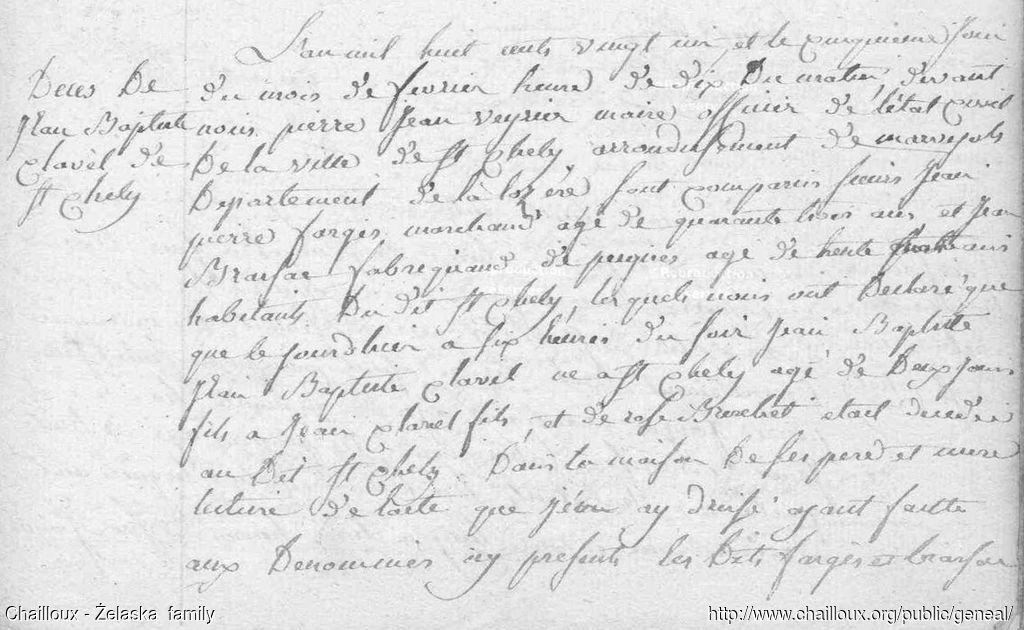 L'an mil huit cents vingt un, et le cinquieme jour
Deces De
Jean Baptiste
clavel de
St chely
du mois de fevrier heure de dix Du matin, devant
nous, pierre Jean veyrier maire officier de l'état civil
De la ville de St Chely, arrondissement de marvejols
Departement de la lozère, sont comparus sieurs Jean
pierre farges, marchand agé de quarante trois ans, et Jean
Brassac fabriquand de peignes agé de trente ans
habitants Du dit St Chely, lesquels nous ont Declaré que
que le jourdhier a six heures du soir Jean Baptiste
Jean Baptiste clavel né a St chely agé de Deux jours
fils a Jean clavel fils, et de rose Brechet etait decedé
au Dit St Chely Dans la maison De ses pere et mere
lecture de l'acte que j'en ay dressé ayant faitte
aux Denommés icy presents les Dits farges et brassac
Chailloux - Želaska family
http://www.chailloux.org/public/geneal/